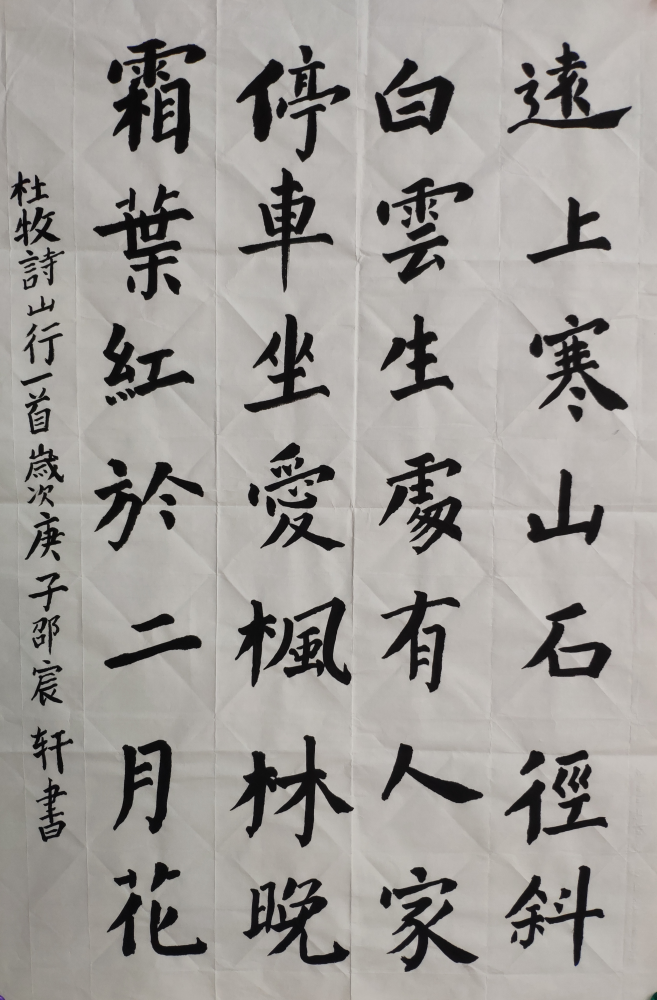 遠上寒山石徑斜
白雲生處有人家
停車坐愛楓林晚
霜葉紅於二月花
杜牧詩山行一首歲次庚子邵宸軒書